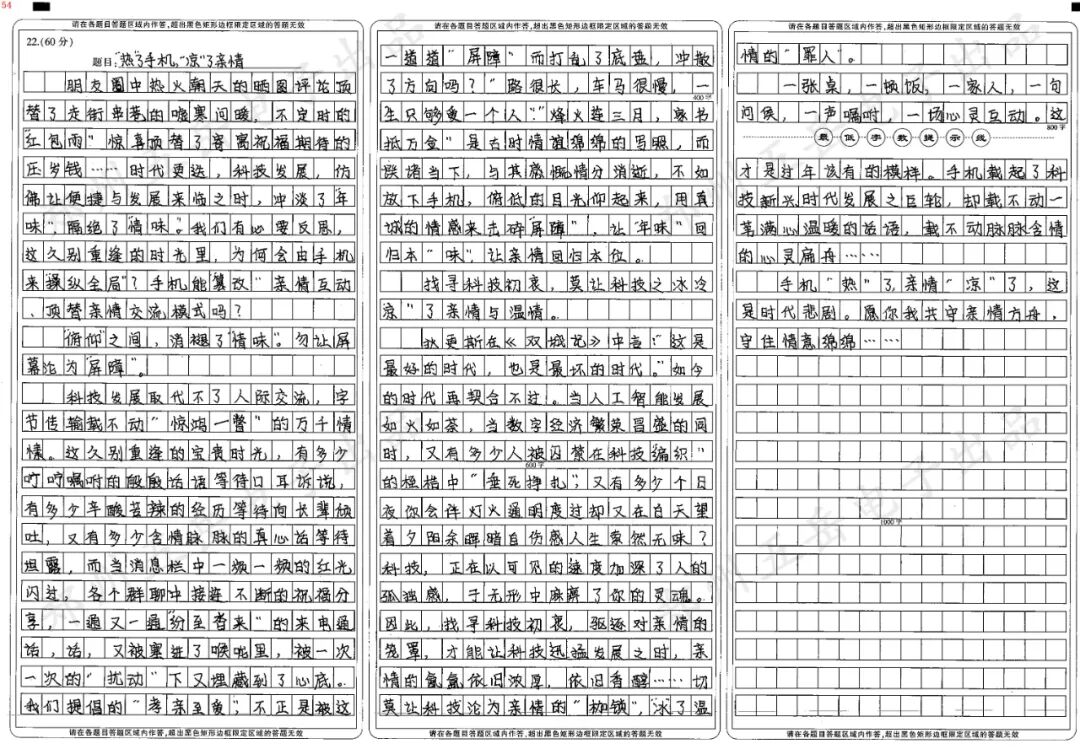 54
请在各题目答题区域内作答,超出黑色矩形边框限定区域的答题无效
22.(60分)
题目:“热”了手机,“凉”了亲情
朋友圈中热火朝天的晒图评论顶
替了走街串巷的嘘寒问暖,不定时的
“红包雨”惊喜顶替了寄寓祝福期待的
压岁钱……时代更迭,科技发展,仿
佛让便捷与发展来临之时,冲淡了“年
味”,隔绝了“情味”。我们有必要反思,
这久别重逢的时光里,为何会由手机
来“操纵全局”?手机能“篡改”亲情互动
、顶替亲情交流模式吗?
“俯仰”之间,消褪了“情味”。勿让屏
幕沦为“屏障”。
科技发展取代不了人际交流,字
节传输载不动“惊鸿一瞥”的万千情
愫。这久别重逢的宝贵时光,有多少
叮咛嘱咐的殷殷话语等待口耳诉说,
有多少辛酸苦辣的经历等待向长辈倾
吐,又有多少含情脉脉的真心话等待
坦露,而当消息栏中一频一频的红光
闪过,各个群聊中接连不断的祝福分
享,一遍又一遍“纷至沓来”的来电通
话,话,又被塞进了喉咙里,被一次
一次的“扰动”下又埋藏到了心底。
我们提倡的“孝亲至爱”,不正是被这
请在各题目答题区域内作答,超出黑色矩形边框限定区域的答题无效
请在各题目答题区域内作答,超出黑色矩形边框限定区域的答题无效
一道道“屏障”而打乱了底盘,冲散
了方向吗?“路很长,车马很慢,一
400字
生只够爱一个人”“烽火连三月,家书
抵万金”是古时情谊绵绵的写照,而
跌堵当下,与其感慨情分消逝,不如
放下手机,俯低的目光仰起来,用真
诚的情感来击碎“屏障”,让“年味”回
归本“味”,让亲情回归本位。
找寻科技初衷,莫让科技之冰冷
凉”了亲情与温情。
狄更斯在《双城记》中言:“这是
最好的时代,也是最坏的时代。”如今
的时代再契合不过。当人工智能发展
如火如荼,当数字经济繁荣昌盛的同
时,又有多少人被囚禁在科技“编织”
600字
的桎梏中“垂死挣扎”,又有多少个日
夜你会伴灯火通明度过却又在白天望
着夕阳余晖暗自伤感人生索然无味?
科技,正在以可见的速度加深了人的
孤独感,于无形中麻痹了你的灵魂。
因此,找寻科技初衷,驱逐对亲情的
笼罩,才能让科技迅猛发展之时,亲
情的氤氲依旧浓厚,依旧香醇……切
莫让科技沦为亲情的“枷锁”,“冰”了温
请在各题目答题区域内作答,超出黑色矩形边框限定区域的答题无效
请在各题目答题区域内作答,超出黑色矩形边框限定区域的答题无效
情的“罪人”。
一张桌,一顿饭,一家人,一句
问候,一声嘱咐,一场心灵互动。这
800字
最低字数提示线
才是过年该有的模样。手机载起了科
技新兴时代发展之巨轮,却载不动一
笔满心温暖的话语,载不动脉脉含情
的心灵扁舟……
手机“热”了,亲情“凉”了,这
是时代悲剧。愿你我共守亲情方舟,
守住情意绵绵……
1000字
请在各题目答题区域内作答,超出黑色矩形边框限定区域的答题无效